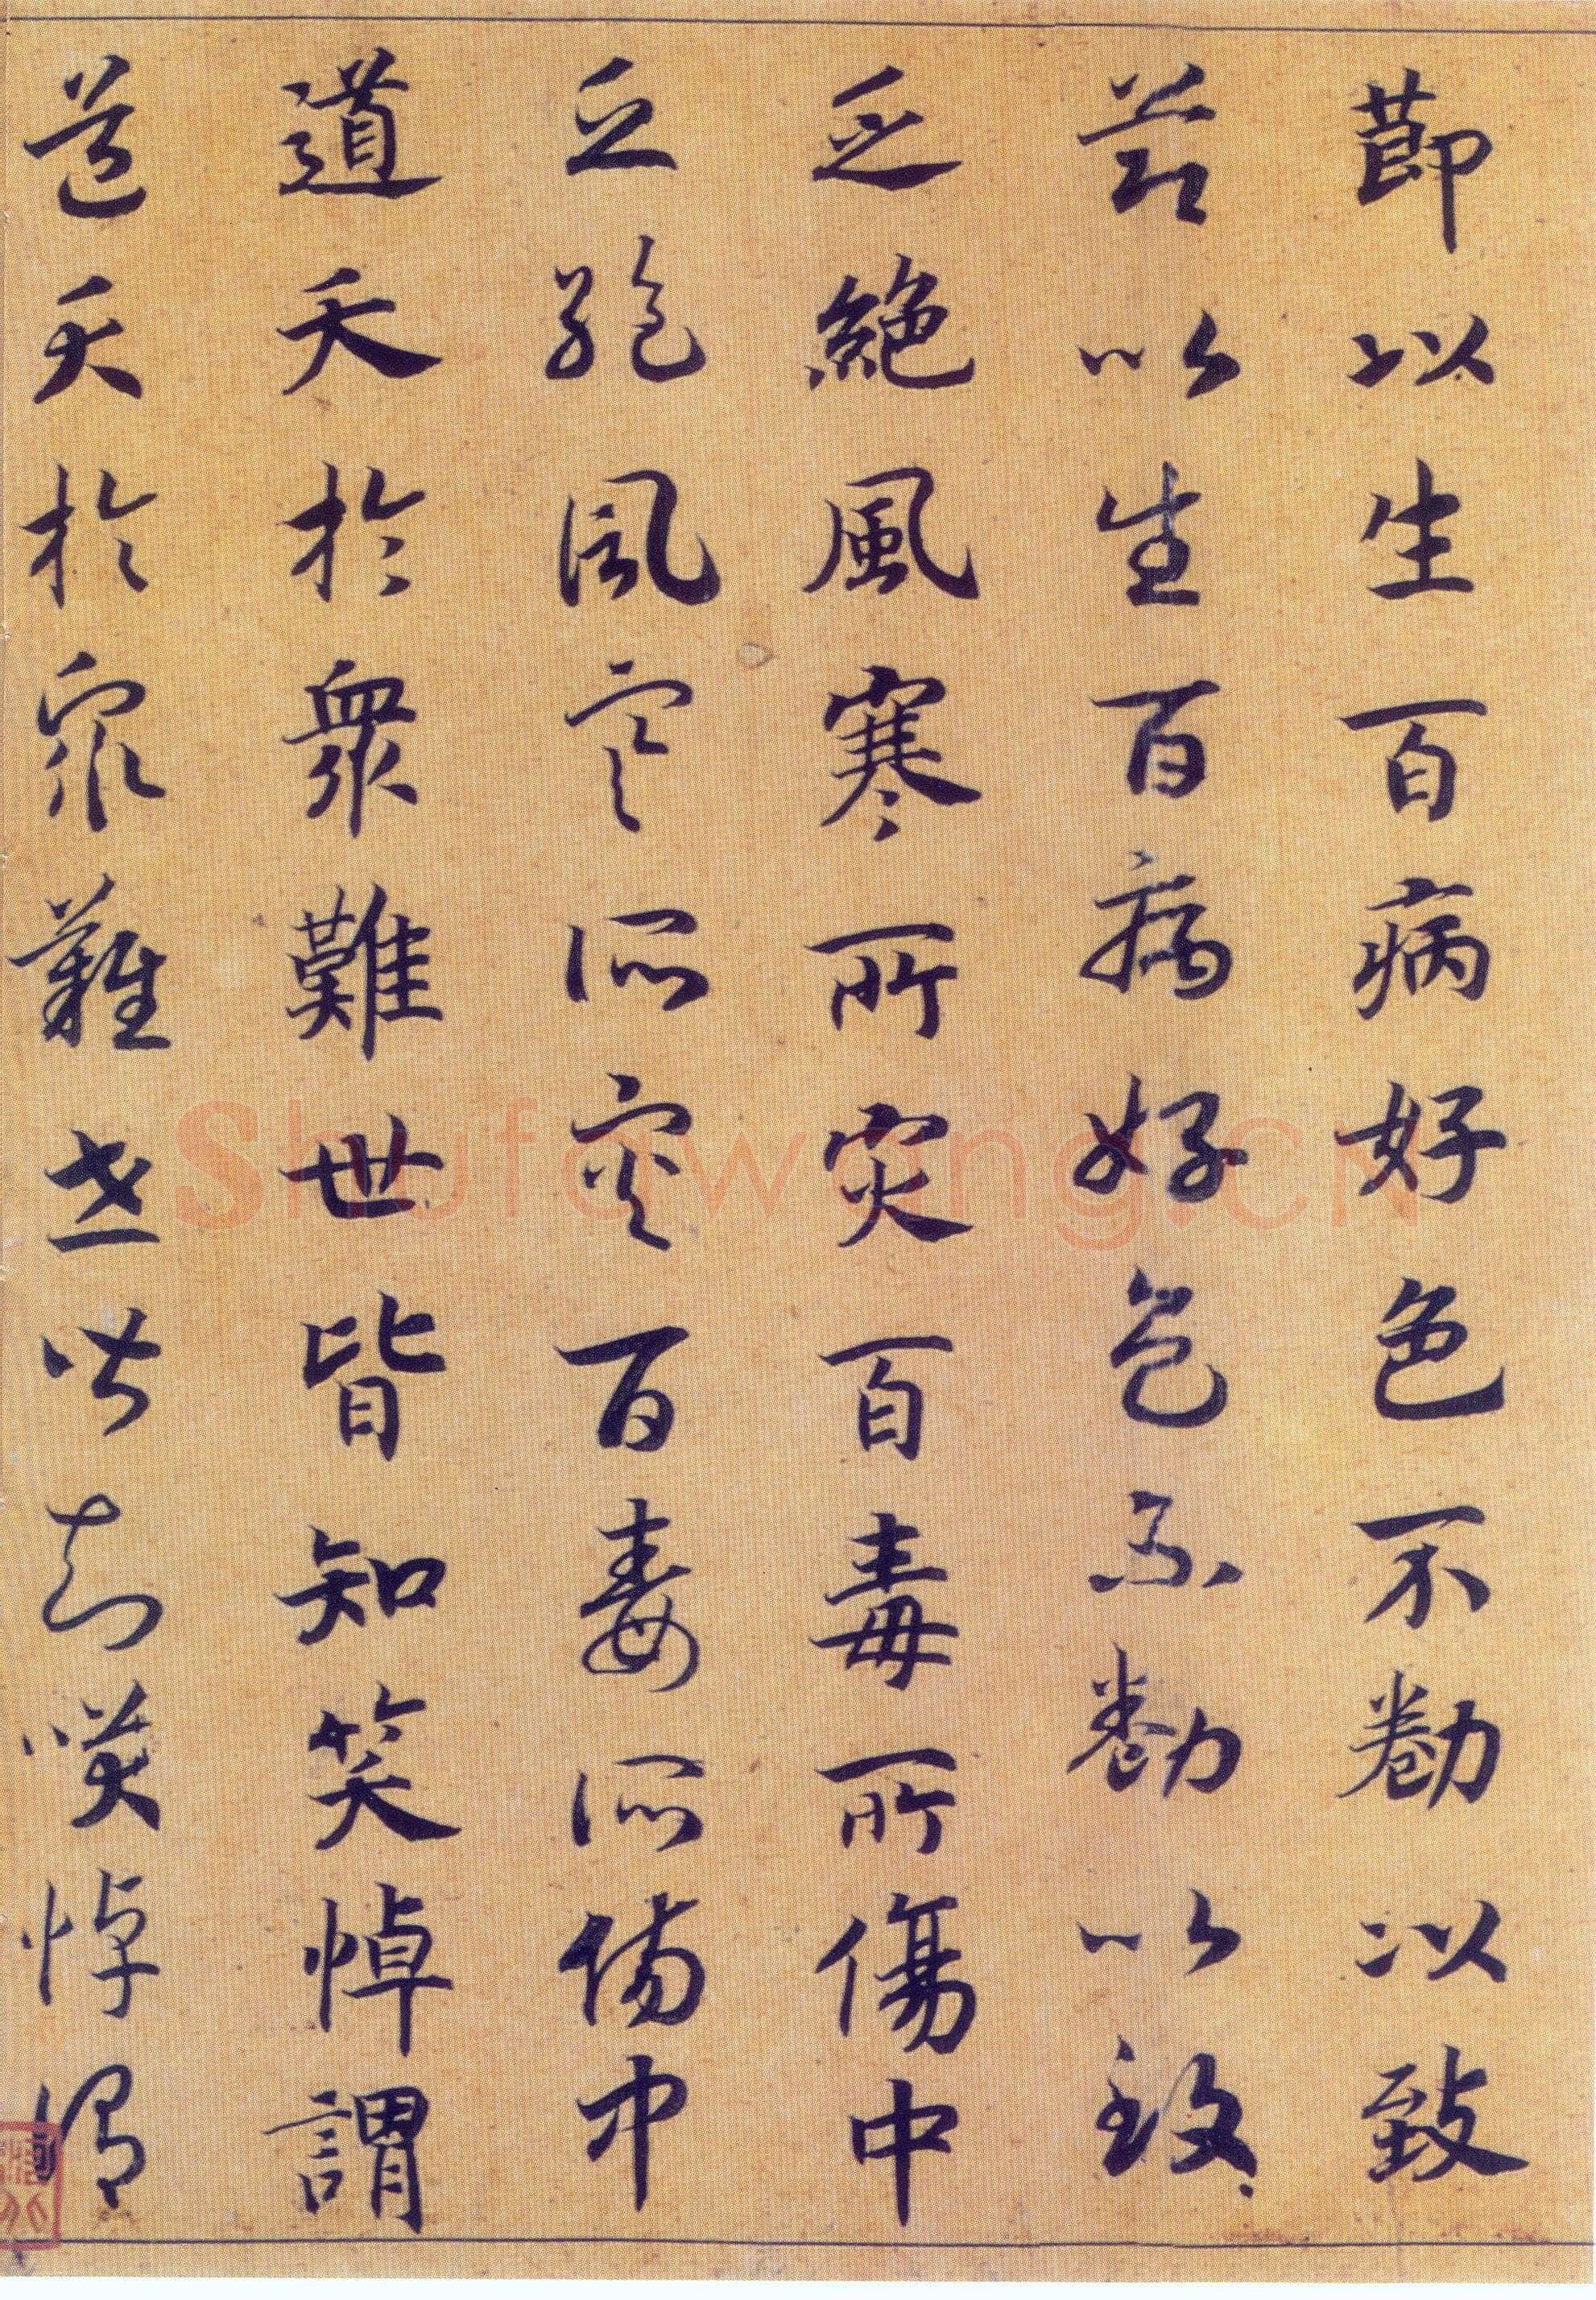 節以生百病好色不勌以致
節以生百病好色不勌以致
乏絕風寒所災百毒所傷中
乏絕風寒所災百毒所傷中
道夭於衆難世皆知笑悼謂
道夭於衆難世皆知笑悼謂
Shufawang.CN